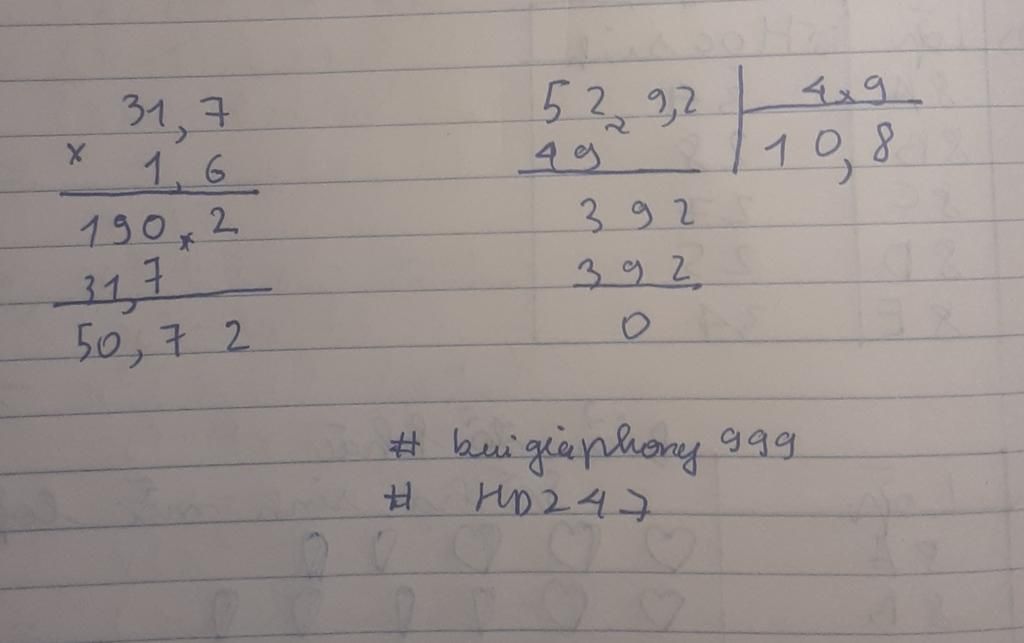 31,7
× 1,6
190,2
31,7
50,72
52,9,2 | 4,9
49 | 10,8
392
392
0
# buigiaphong 999
# HD247